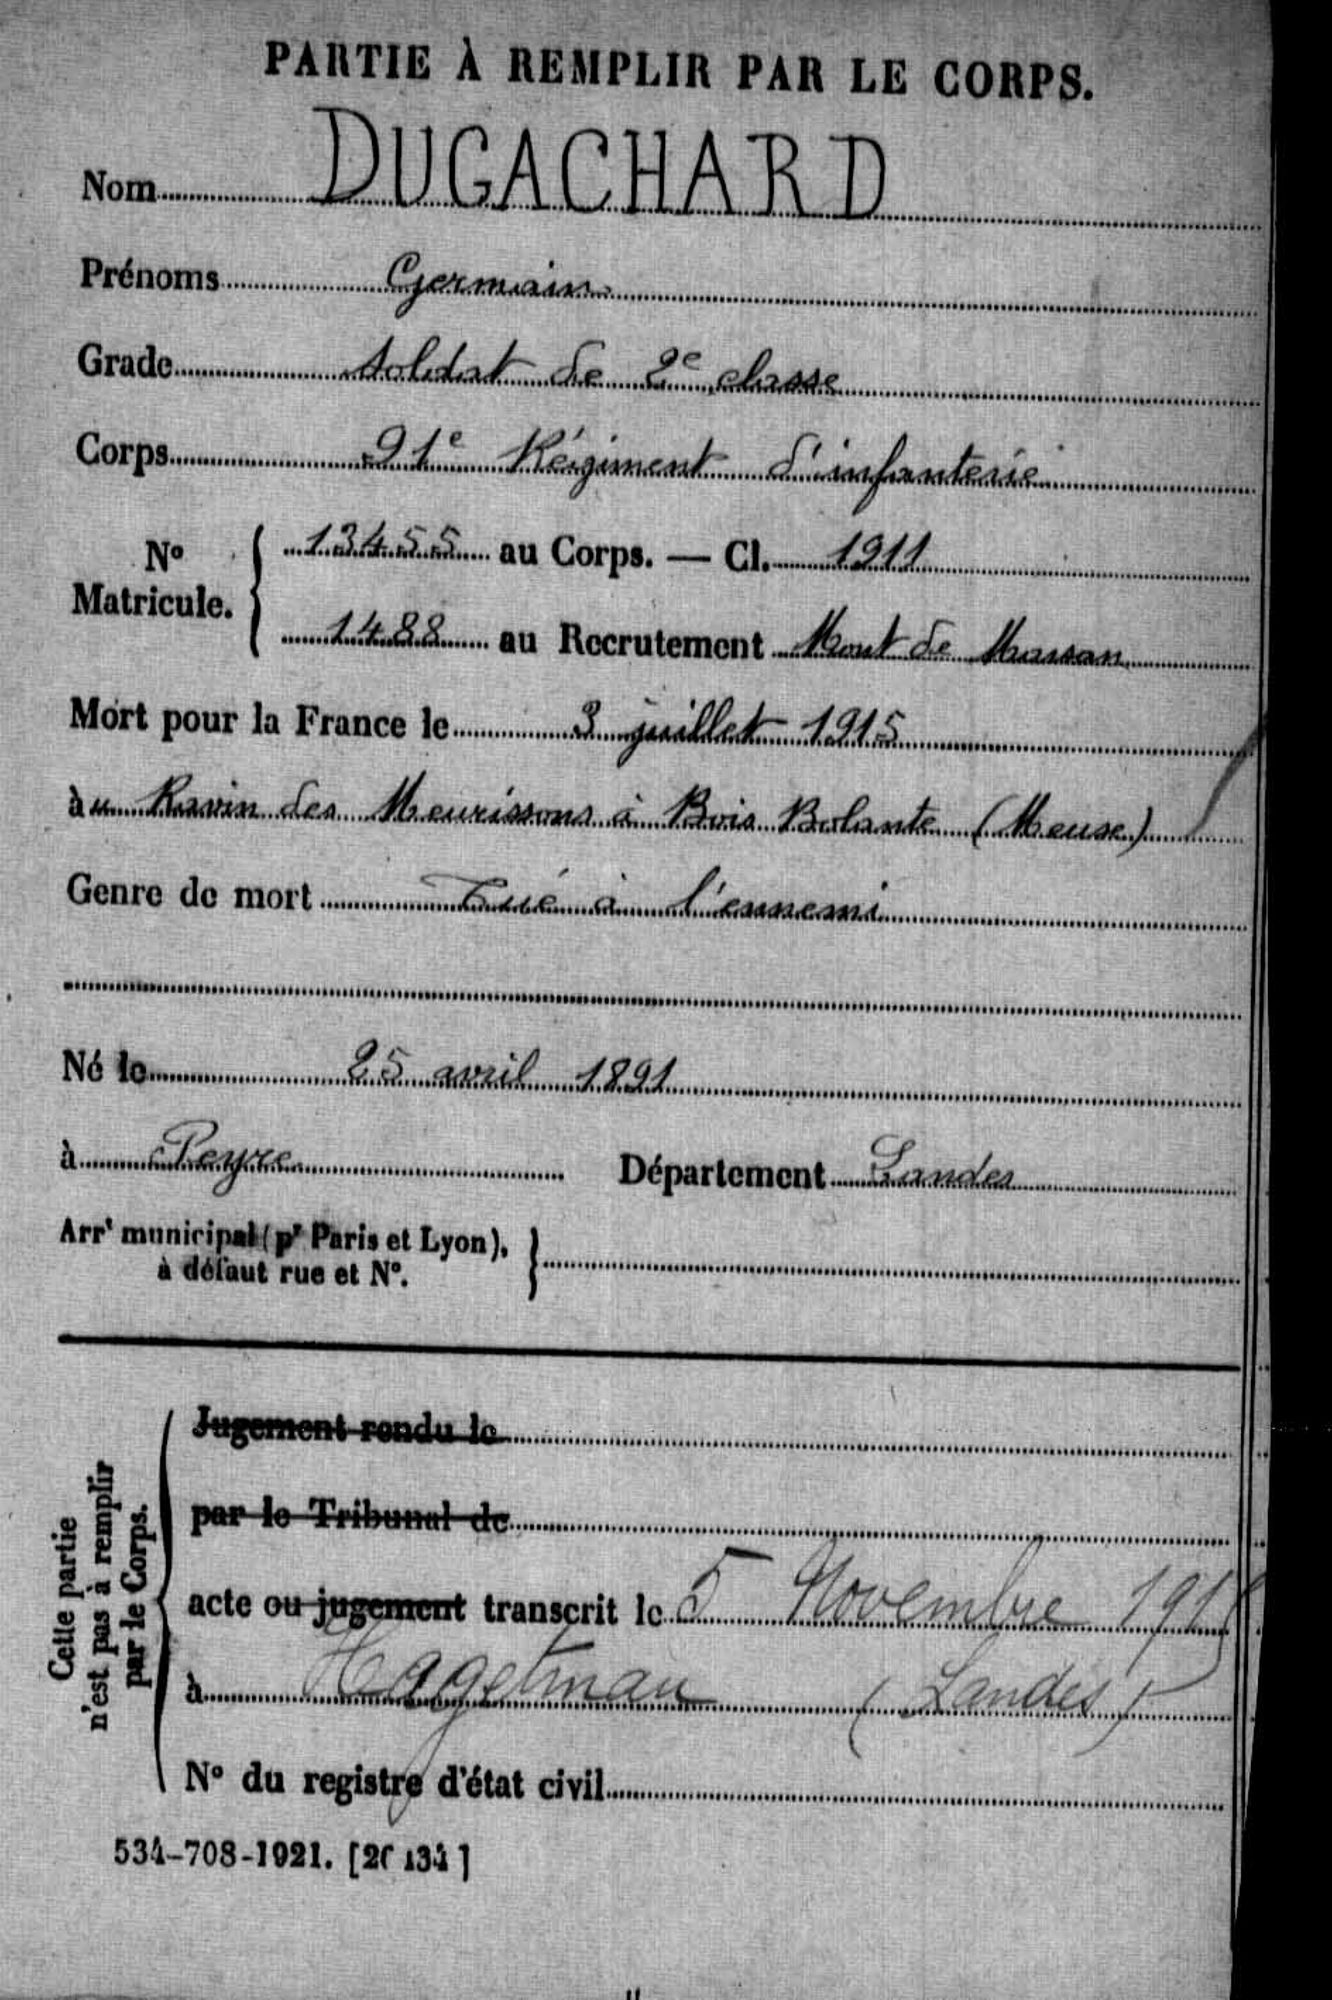 PARTIE À REMPLIR PAR LE CORPS.
Nom DUGACHARD
Prénoms Germain
Grade Soldat de 2e classe
Corps 91e Régiment d'infanterie
No Matricule. { 13455 au Corps. — Cl. 1911
1488 au Recrutement Mont de Marsan
Mort pour la France le 3 juillet 1915
àu Ravin des Meurissons à Bois Bolante (Meuse)
Genre de mort Tué à l'ennemi
Né le 25 avril 1891
à Peyre Département Landes
Arrt municipal (pr Paris et Lyon), }
à défaut rue et No.
Cette partie
n'est pas à remplir
par le Corps.
Jugement rendu le
par le Tribunal de
acte ou jugement transcrit le 5 Novembre
à Hagetmau (Landes)
No du registre d'état civil
534-708-1921.